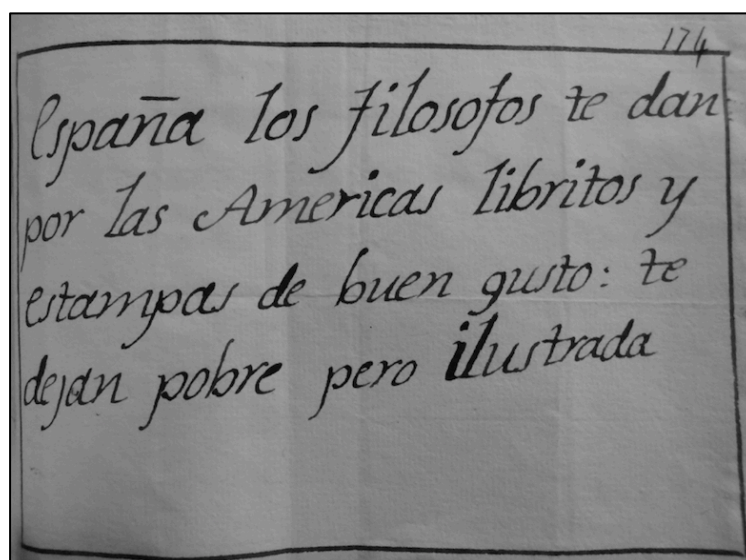 174
España los filosofos te dan
por las Americas libritos y
estampas de buen gusto: te
dejan pobre pero ilustrada